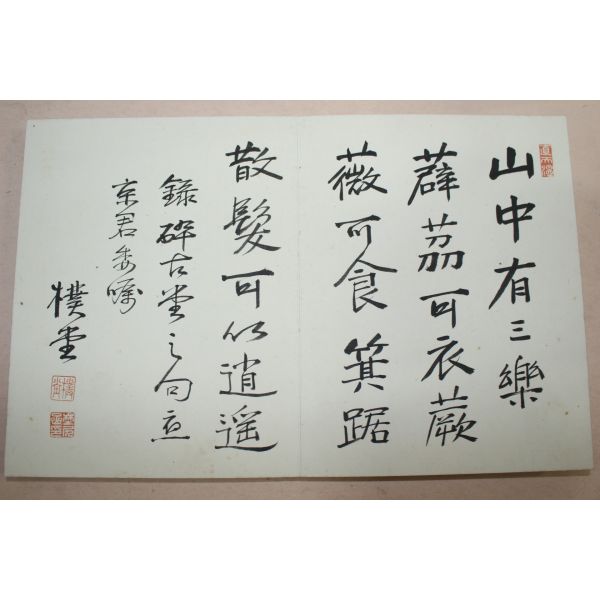 山中有三樂
薜荔可衣蕨
薇可食箕踞
散髮可以逍遥
錄醉古堂之句應
京君委囑
樸堂